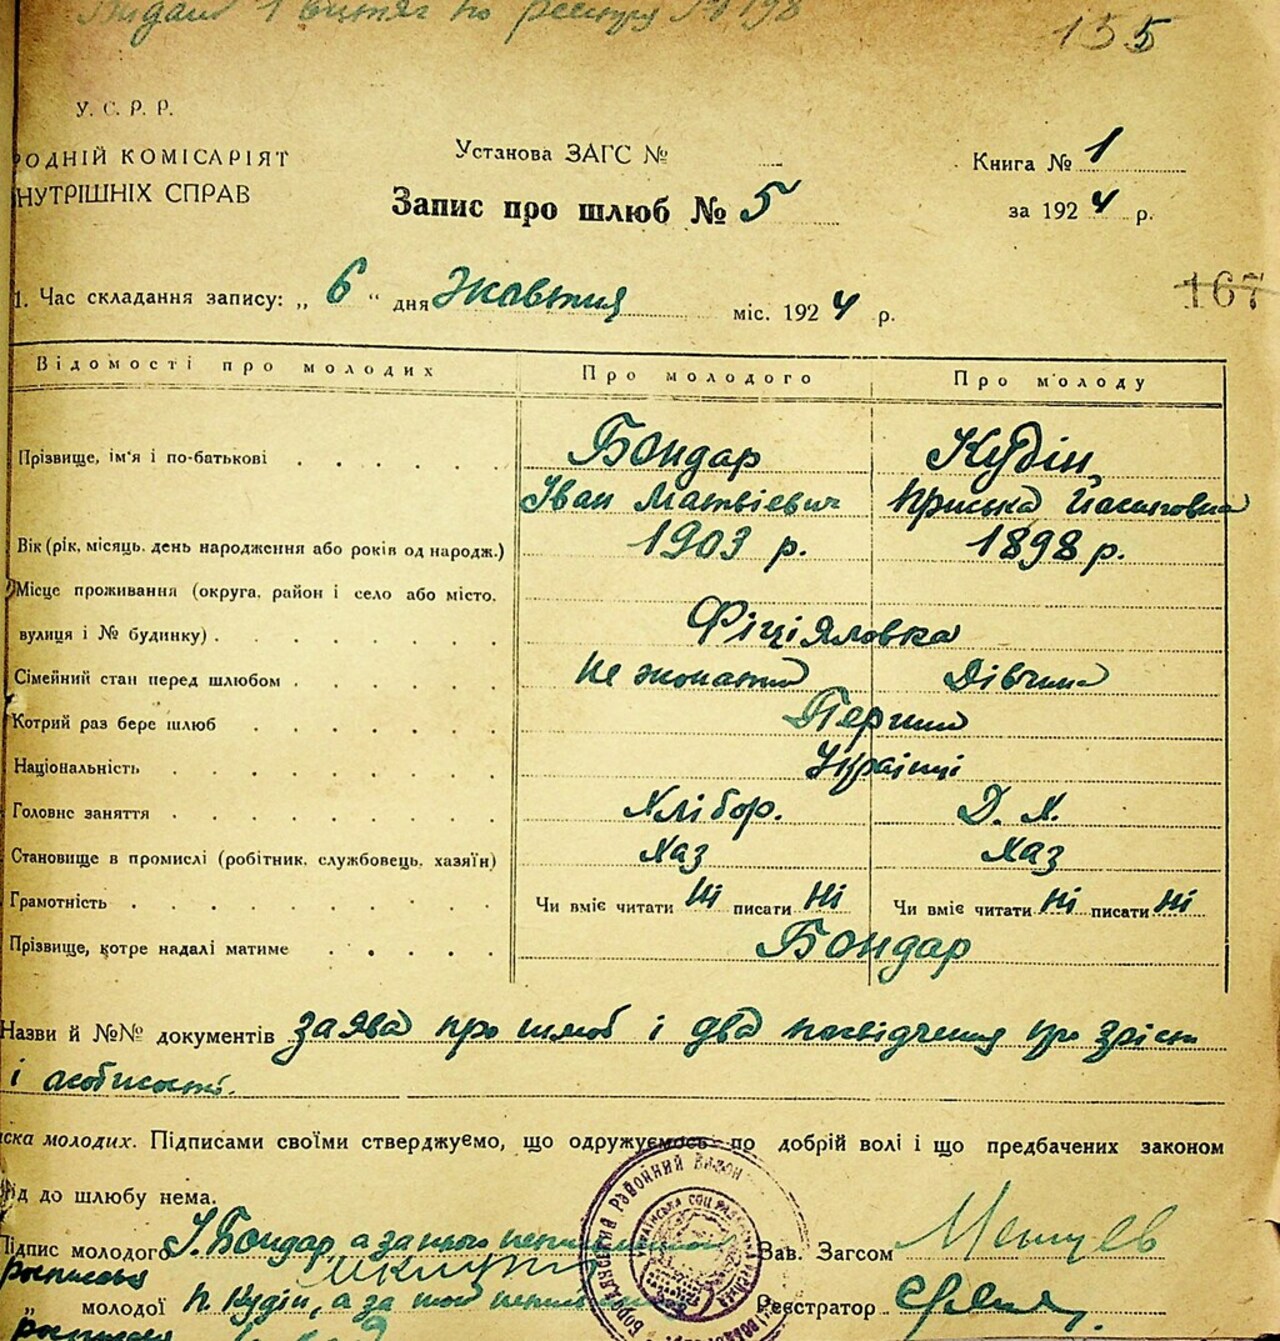 Видано 1 витяг по реєстру № 198
155
У. С. Р. Р.
РОДНІЙ КОМІСАРІЯТ
НУТРІШНІХ СПРАВ
Установа ЗАГС №
Книга № 1
Запис про шлюб № 5
за 1924 р.
1. Час складання запису: „ 6 “ дня Жовтня міс. 1924 р.
167
Відомості про молодих Про молодого Про молоду
Прізвище, ім'я і по-батькові Бондар Кудін
Іван МатвієвичПриська
Вік (рік, місяць, день народження або років од народж.) 1903 р. 1898 р.
Місце проживання (округа, район і село або місто,
вулиця і № будинку) Фіціяловка
Сімейний стан перед шлюбом Не жонатий Дівчина
Котрий раз бере шлюб Перший
Національність Українці
Головне заняття Хлібор. Д. Х.
Становище в промислі (робітник, службовець, хазяїн) Хаз Хаз
Грамотність Чи вміє читати Ні писати Ні Чи вміє читати Ні писати Ні
Прізвище, котре надалі матиме Бондар
Назви й №№ документів заява про шлюб і два посвідчення про зріст
і особистость.
иска молодих. Підписами своїми стверджуємо, що одружуємось по добрій волі і що предбачених законом
від до шлюбу нема.
Підпис молодого І. Бондар, а за нього неписьменного Зав. Загсом
росписався
„ молодої П. Кудін, а за Реєстратор
росписався
РАЙОННИЙ